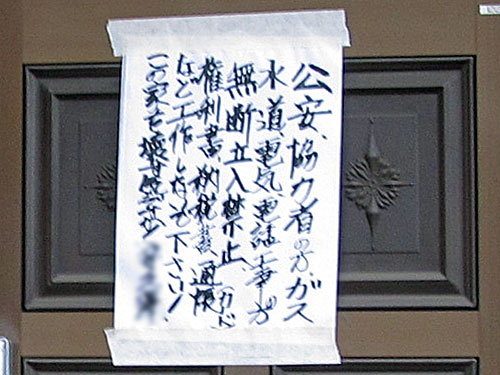 公安、協力者の方、ガス
水道、電気、電話工事の方
無断立入禁止、カド
権利書、納税書、通帳
など工作しないで下さい!
この家を壊す気